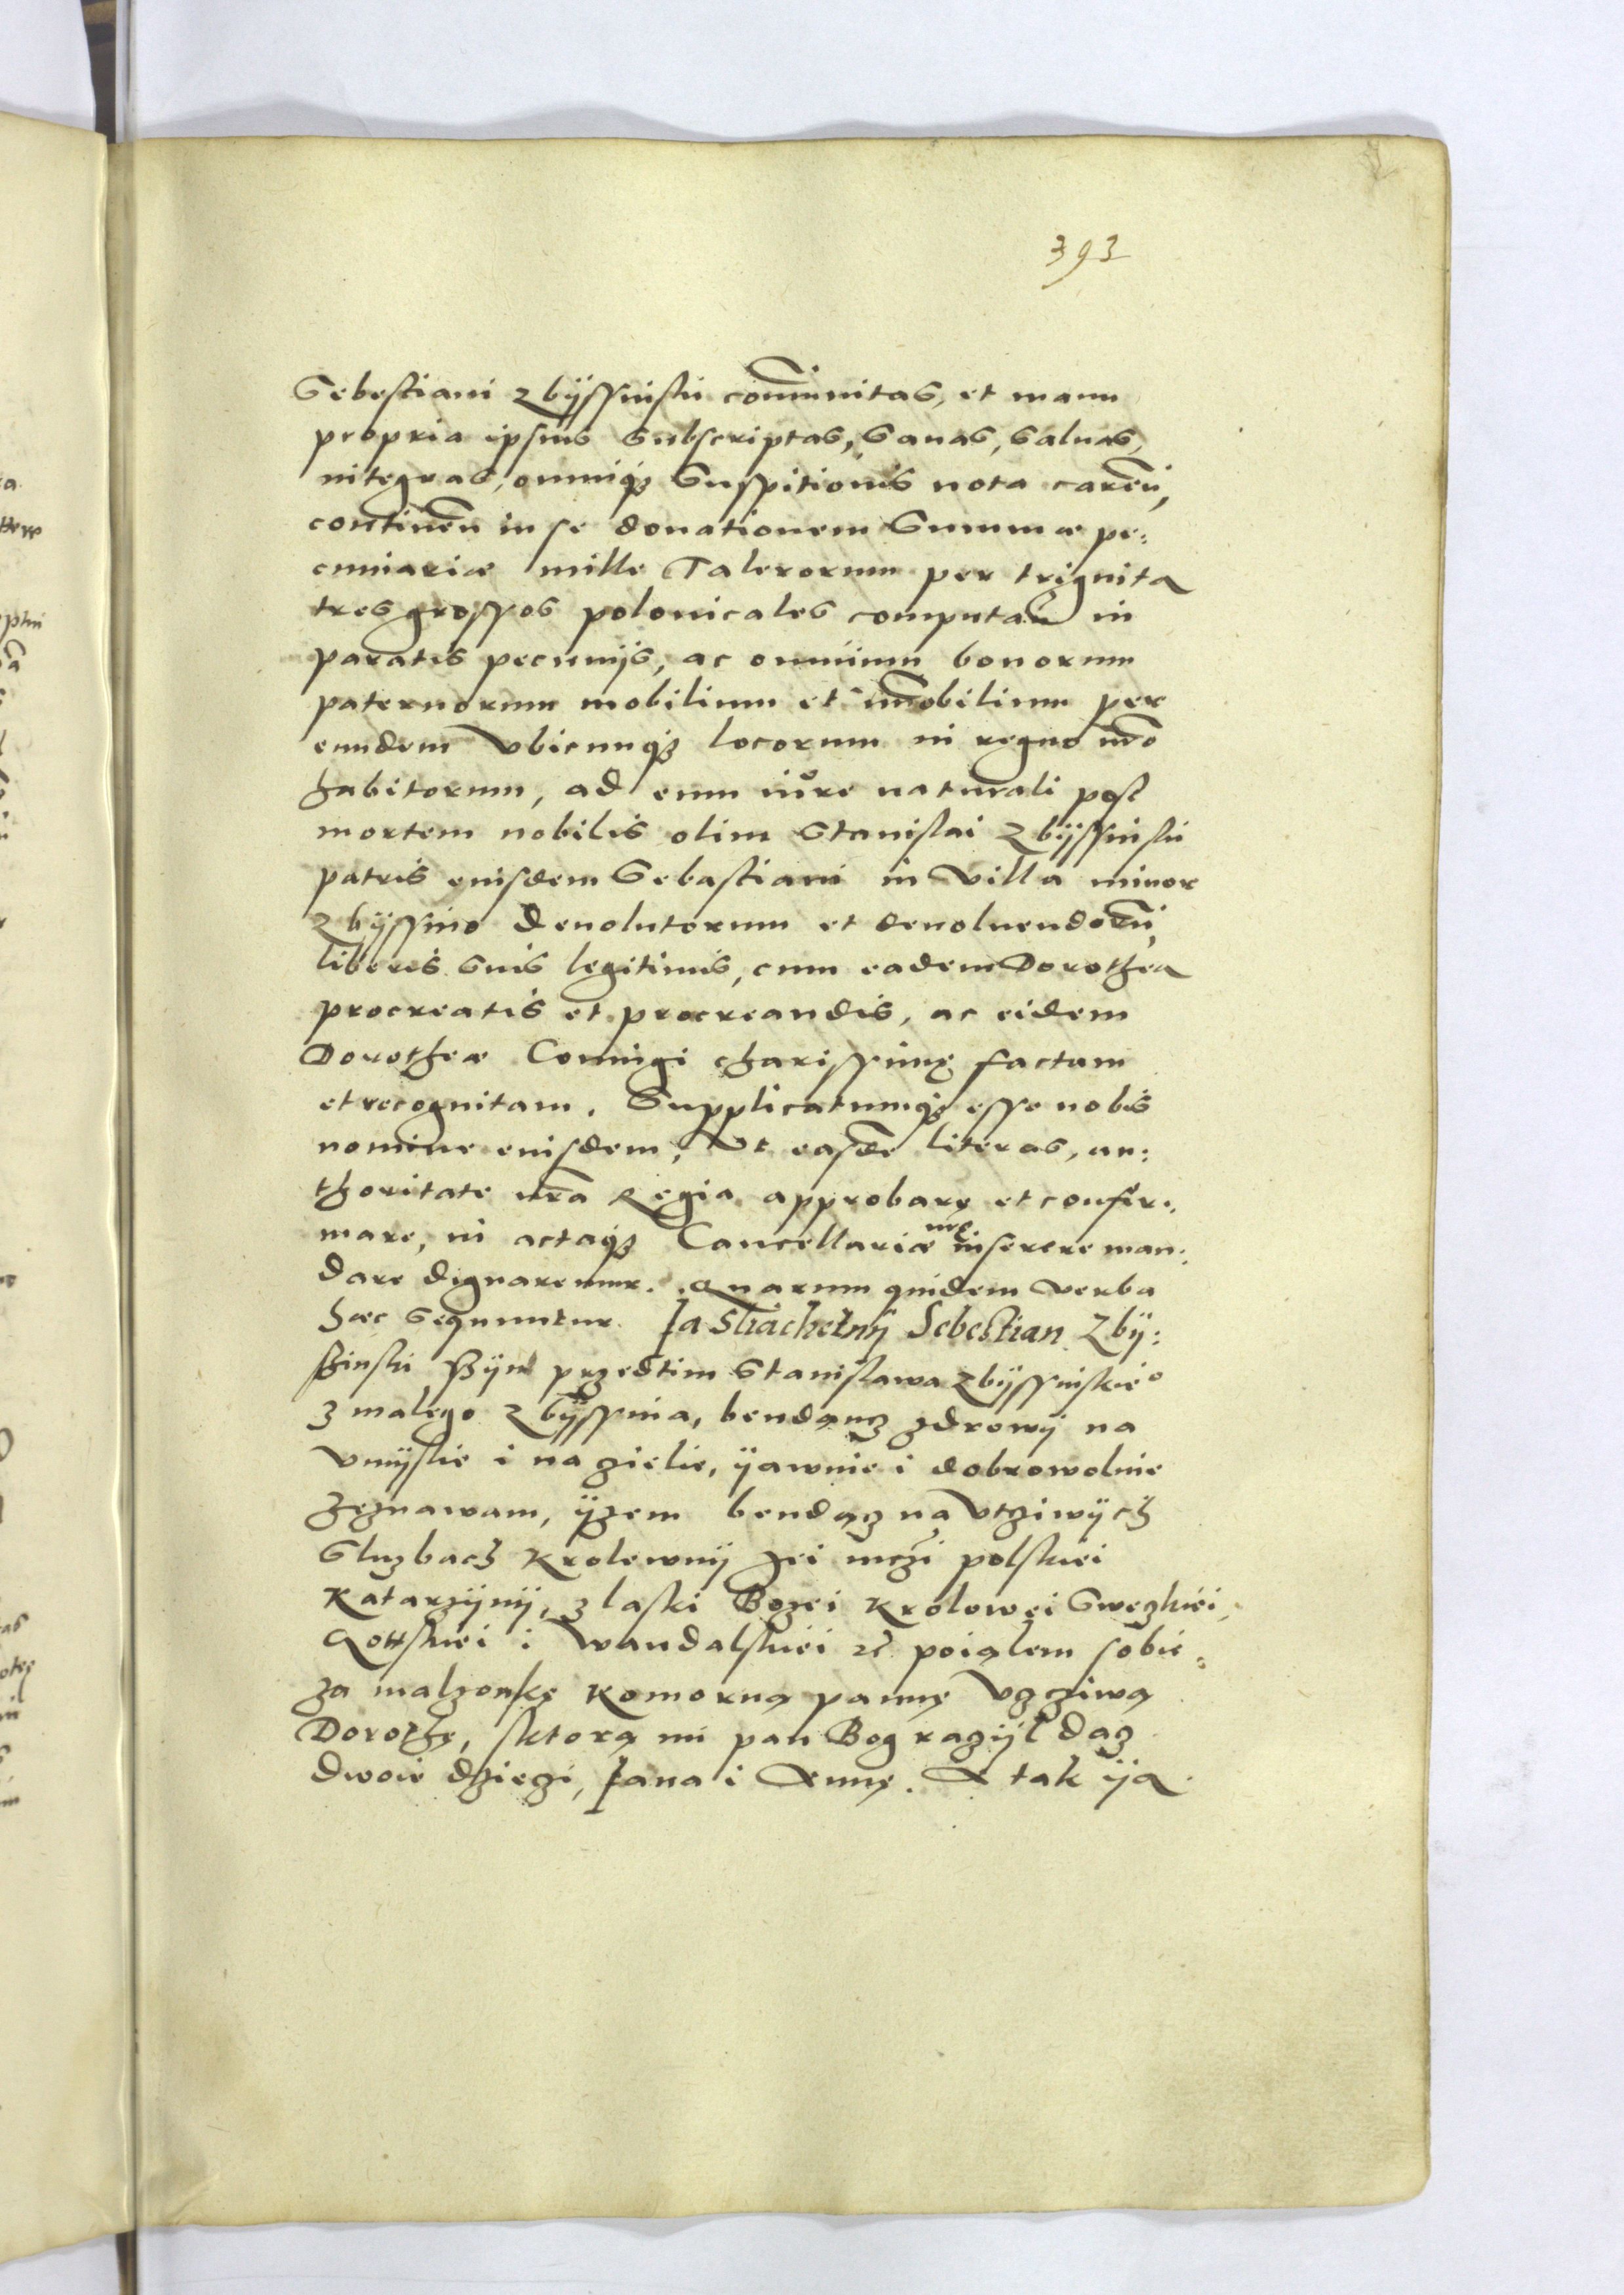 393
Sebestiani Zbijssinski com̃unitas, et manu
propria ipsius subscriptas, sanas, saluas,
integras, omniq₃ suspitionis nota careñ,
contineñ in se donationem summæ pe:
cuniariæ mille Talerorum per triginta
tres grossos polonicales computañ in
paratis pecunijs, ac omnium bonorum
paternorum mobilium et im̃obilium per
eundem vbicunq₃ locorum in regno nr̃o
habitorum, ad eum iůre naturali post
mortem nobilis olim Stanislai Zbijssinski
patris eiusdem Sebastiani in villa minor
Zbijssino deuolutorum et deuoluendorũ,
liberis suis legitimis, cum eadem Dorothea
procreatis et procreandis, ac eidem
Dorotheæ Coniugi charissimę factam
et recognitam. Supplicatumq₃ esse nobis
nomine eiusdem, Vt easdẽ literas, au:
thoritate nr̃a Regia approbarę et confir:
mare, in actaq₃ Cancellariæ nr̃ę inserere man:
dare dignaremur. Quarum quidem verba
hæc sequuntur. Ja Sliachetnij Sebestian Zbij:
ſzinski Szijn przedtim Stanislawa Zbijssinskie°
z malego Zbijssina, bendąncz zdrowij na
vmijslie i na zielie, ijawnie i dobrowolnie
zeznawam, ijzem bendącz na vtziwijch
Sluzbach Krolewnij Jei mczi polskiei
Katarzijnij, z laski Bozei Krolowei Swezkiei,
Gottskiei i Wandalskiei ꝛc̃ poiąlem sobie
za malzonkę Komorną pannę Vzcziwą
Dorothę, sktorą mi pan Bog razijl dacz
dwoie dziezi, Jana i Annę. A tak ija